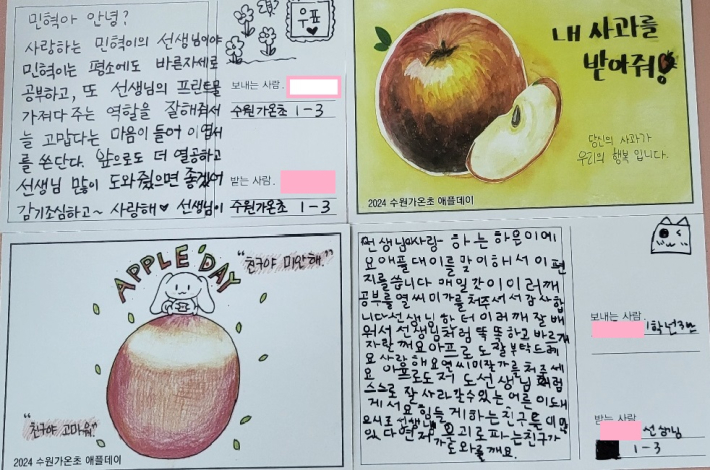 민혁아 안녕?
우표
사랑하는 민혁이의 선생님이야
민혁이는 평소에도 바른자세로
공부하고, 또 선생님의 프린트물
가져다 주는 역할을 잘해줘서
늘 고맙다는 마음이 들어 이 엽서
를 쓴단다. 앞으로도 더 열공하고
선생님 많이 도와줬으면 좋겠어
감기조심하고~ 사랑해♥ 선생님이
보내는 사람.
수원가온초 1-3
받는 사람.
수원가온초 1-3
내 사과를
받아줘!
당신의 사과가
우리의 행복 입니다.
2024 수원가온초 애플데이
APPLE DAY
"친구야 미안해."
"친구야 고마워."
2024 수원가온초 애플데이
선생님 사랑 하는 하은이에
요 애플 대이를 맞이해서 이 편
지를 씁니다 매일 같이 이러께
공부를 열씨미 가르처주셔서 감사합
니다 선생님 한터 이러께 잘 배
워서 선생님처럼 똑똑하고 바르개
자랄께요 아프로도 잘 부탁드려
요 사랑해요 열씨미 가르처주세
요 아프로도 저도 선생님 처럼
스스로 잘 사라갈수있는 어른이 되
게서요 힘들게 하는 친구
있다면 저가
도와줄께요
보내는 사람
1학년3반
받는 사람
선생님
1-3